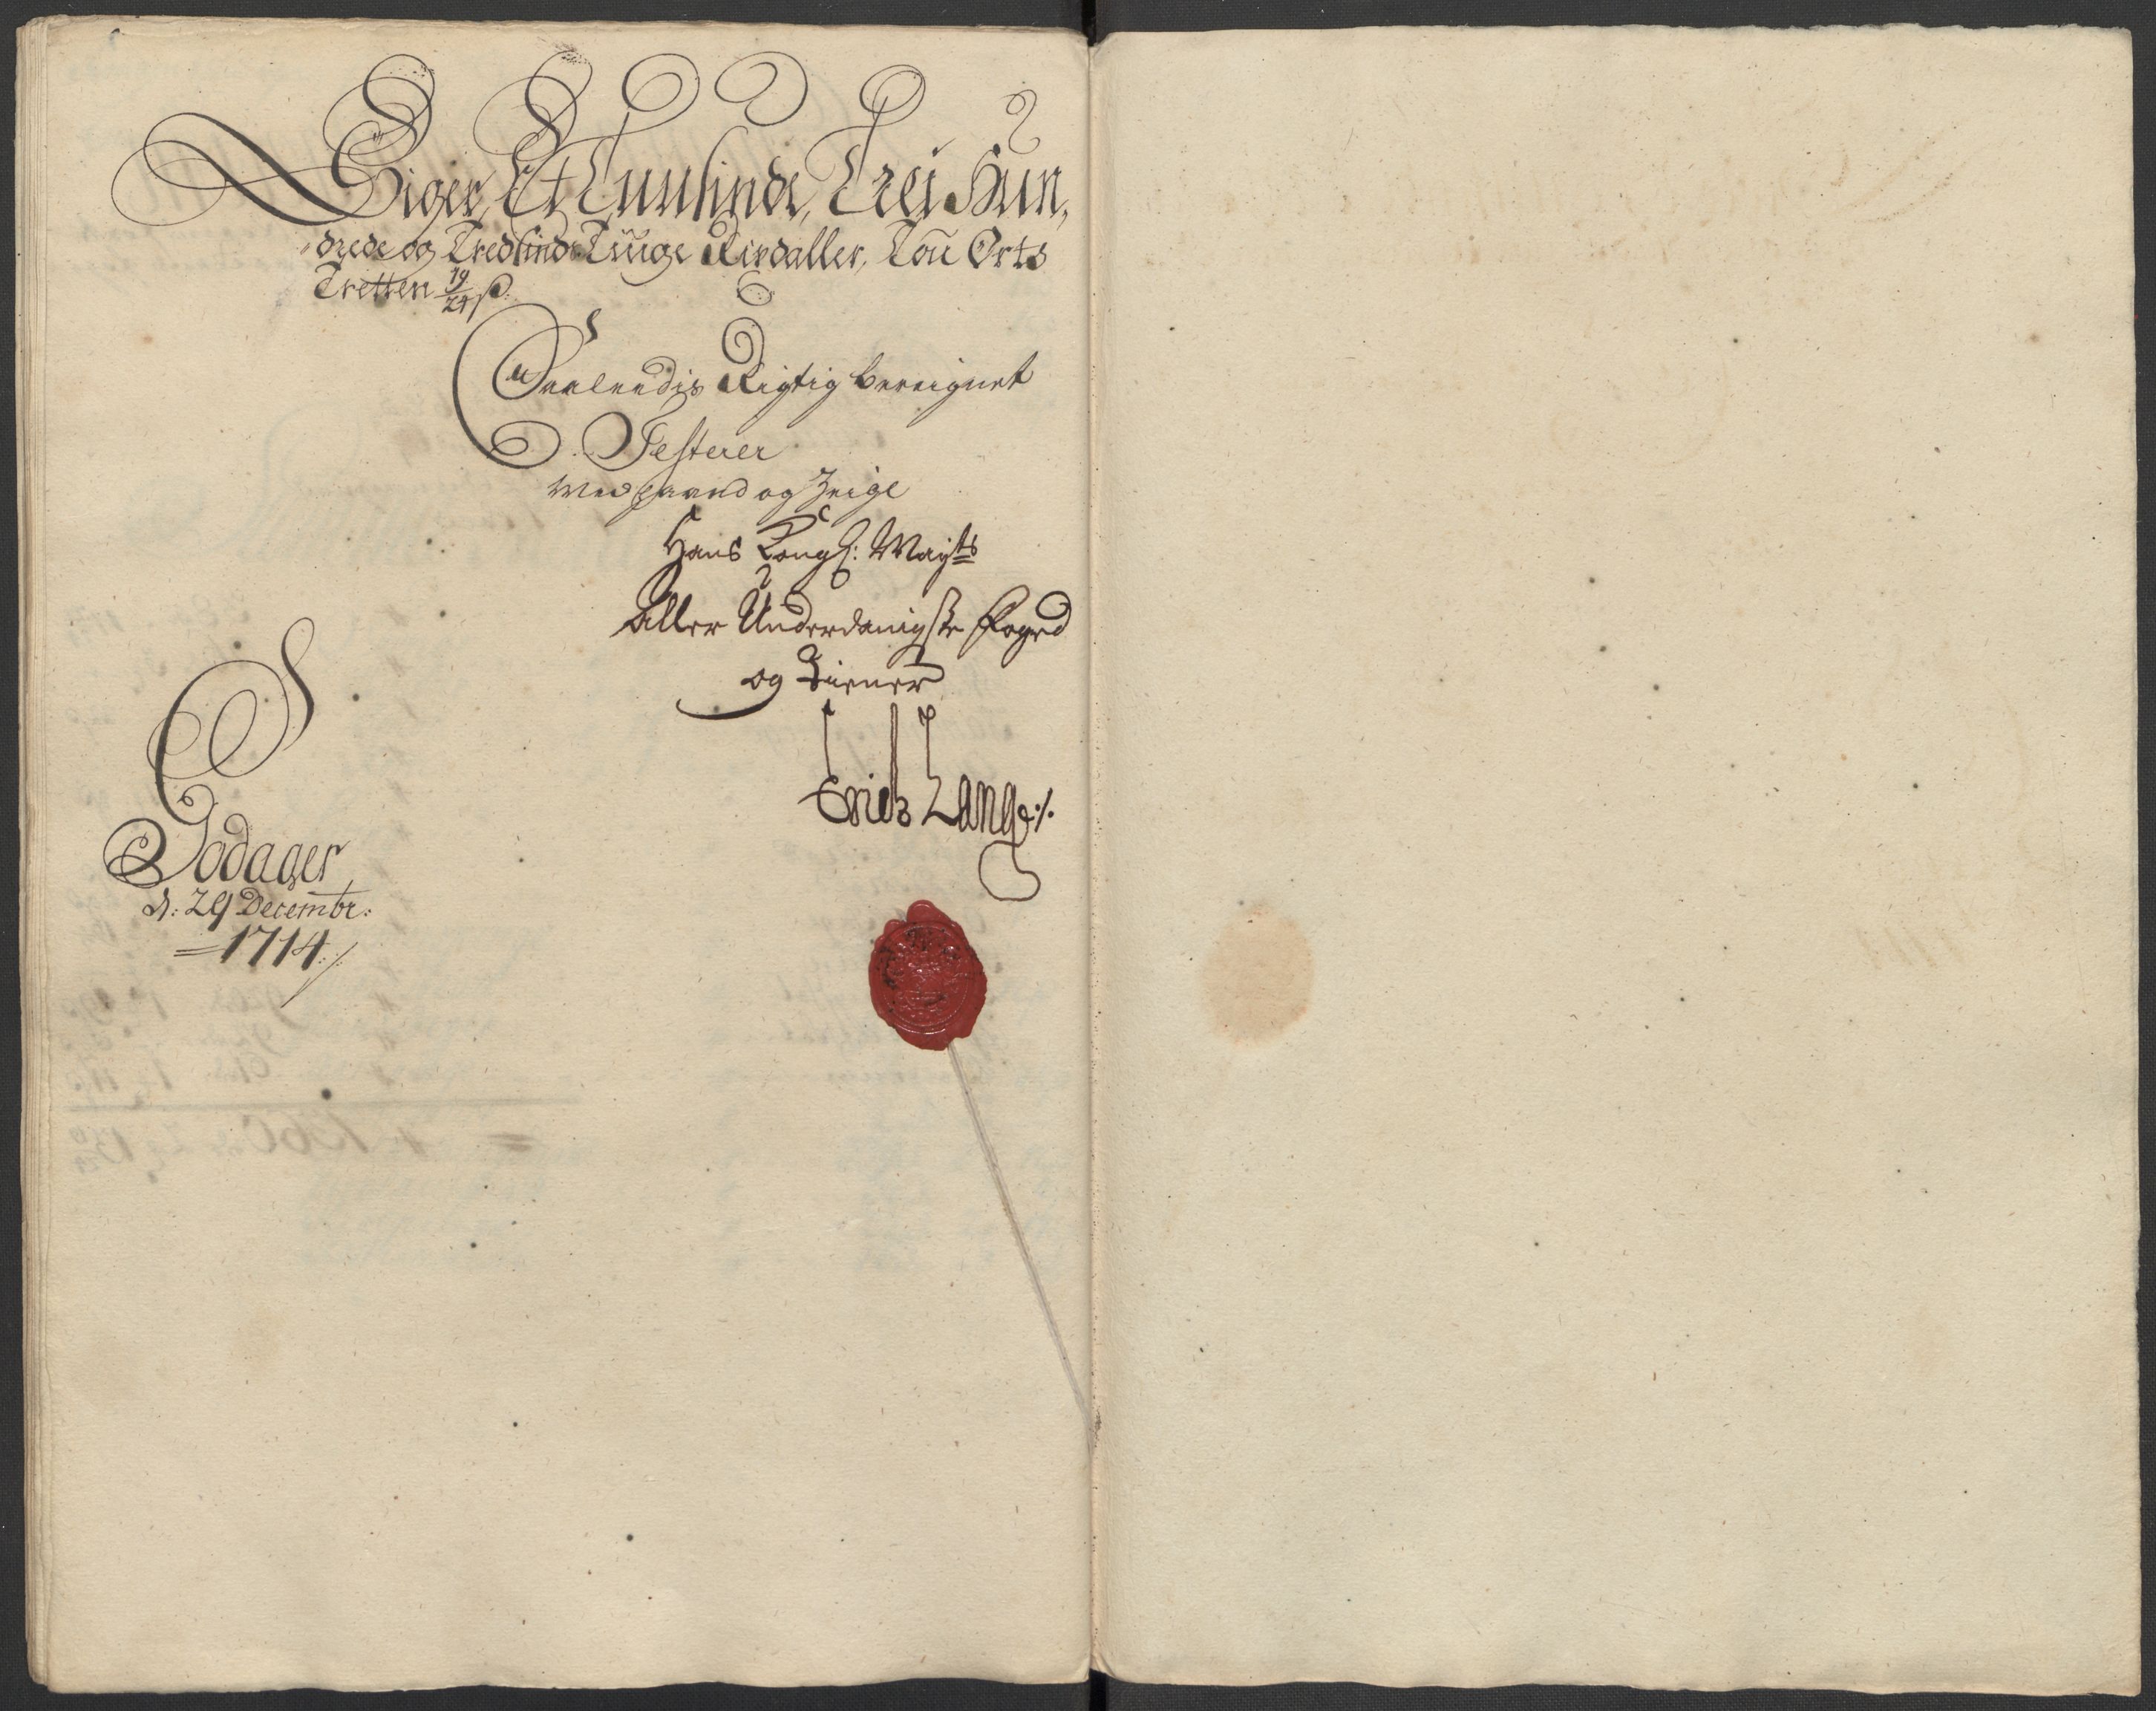 Siger, Et Tuusinde, Trei Hun,
drede og Tredsinds Tiuge Rixdaller, Tou Orts
Tretten 19/24 ß:
Saaleedis Rigtig bereignet
Testerer
Med haand og Zeigl
Hans Kongl: Mayts
Aller Underdanigste foged
og Tiener
Erich Lange ./.
Godager
d: 29 Decembr:
1714 ./.